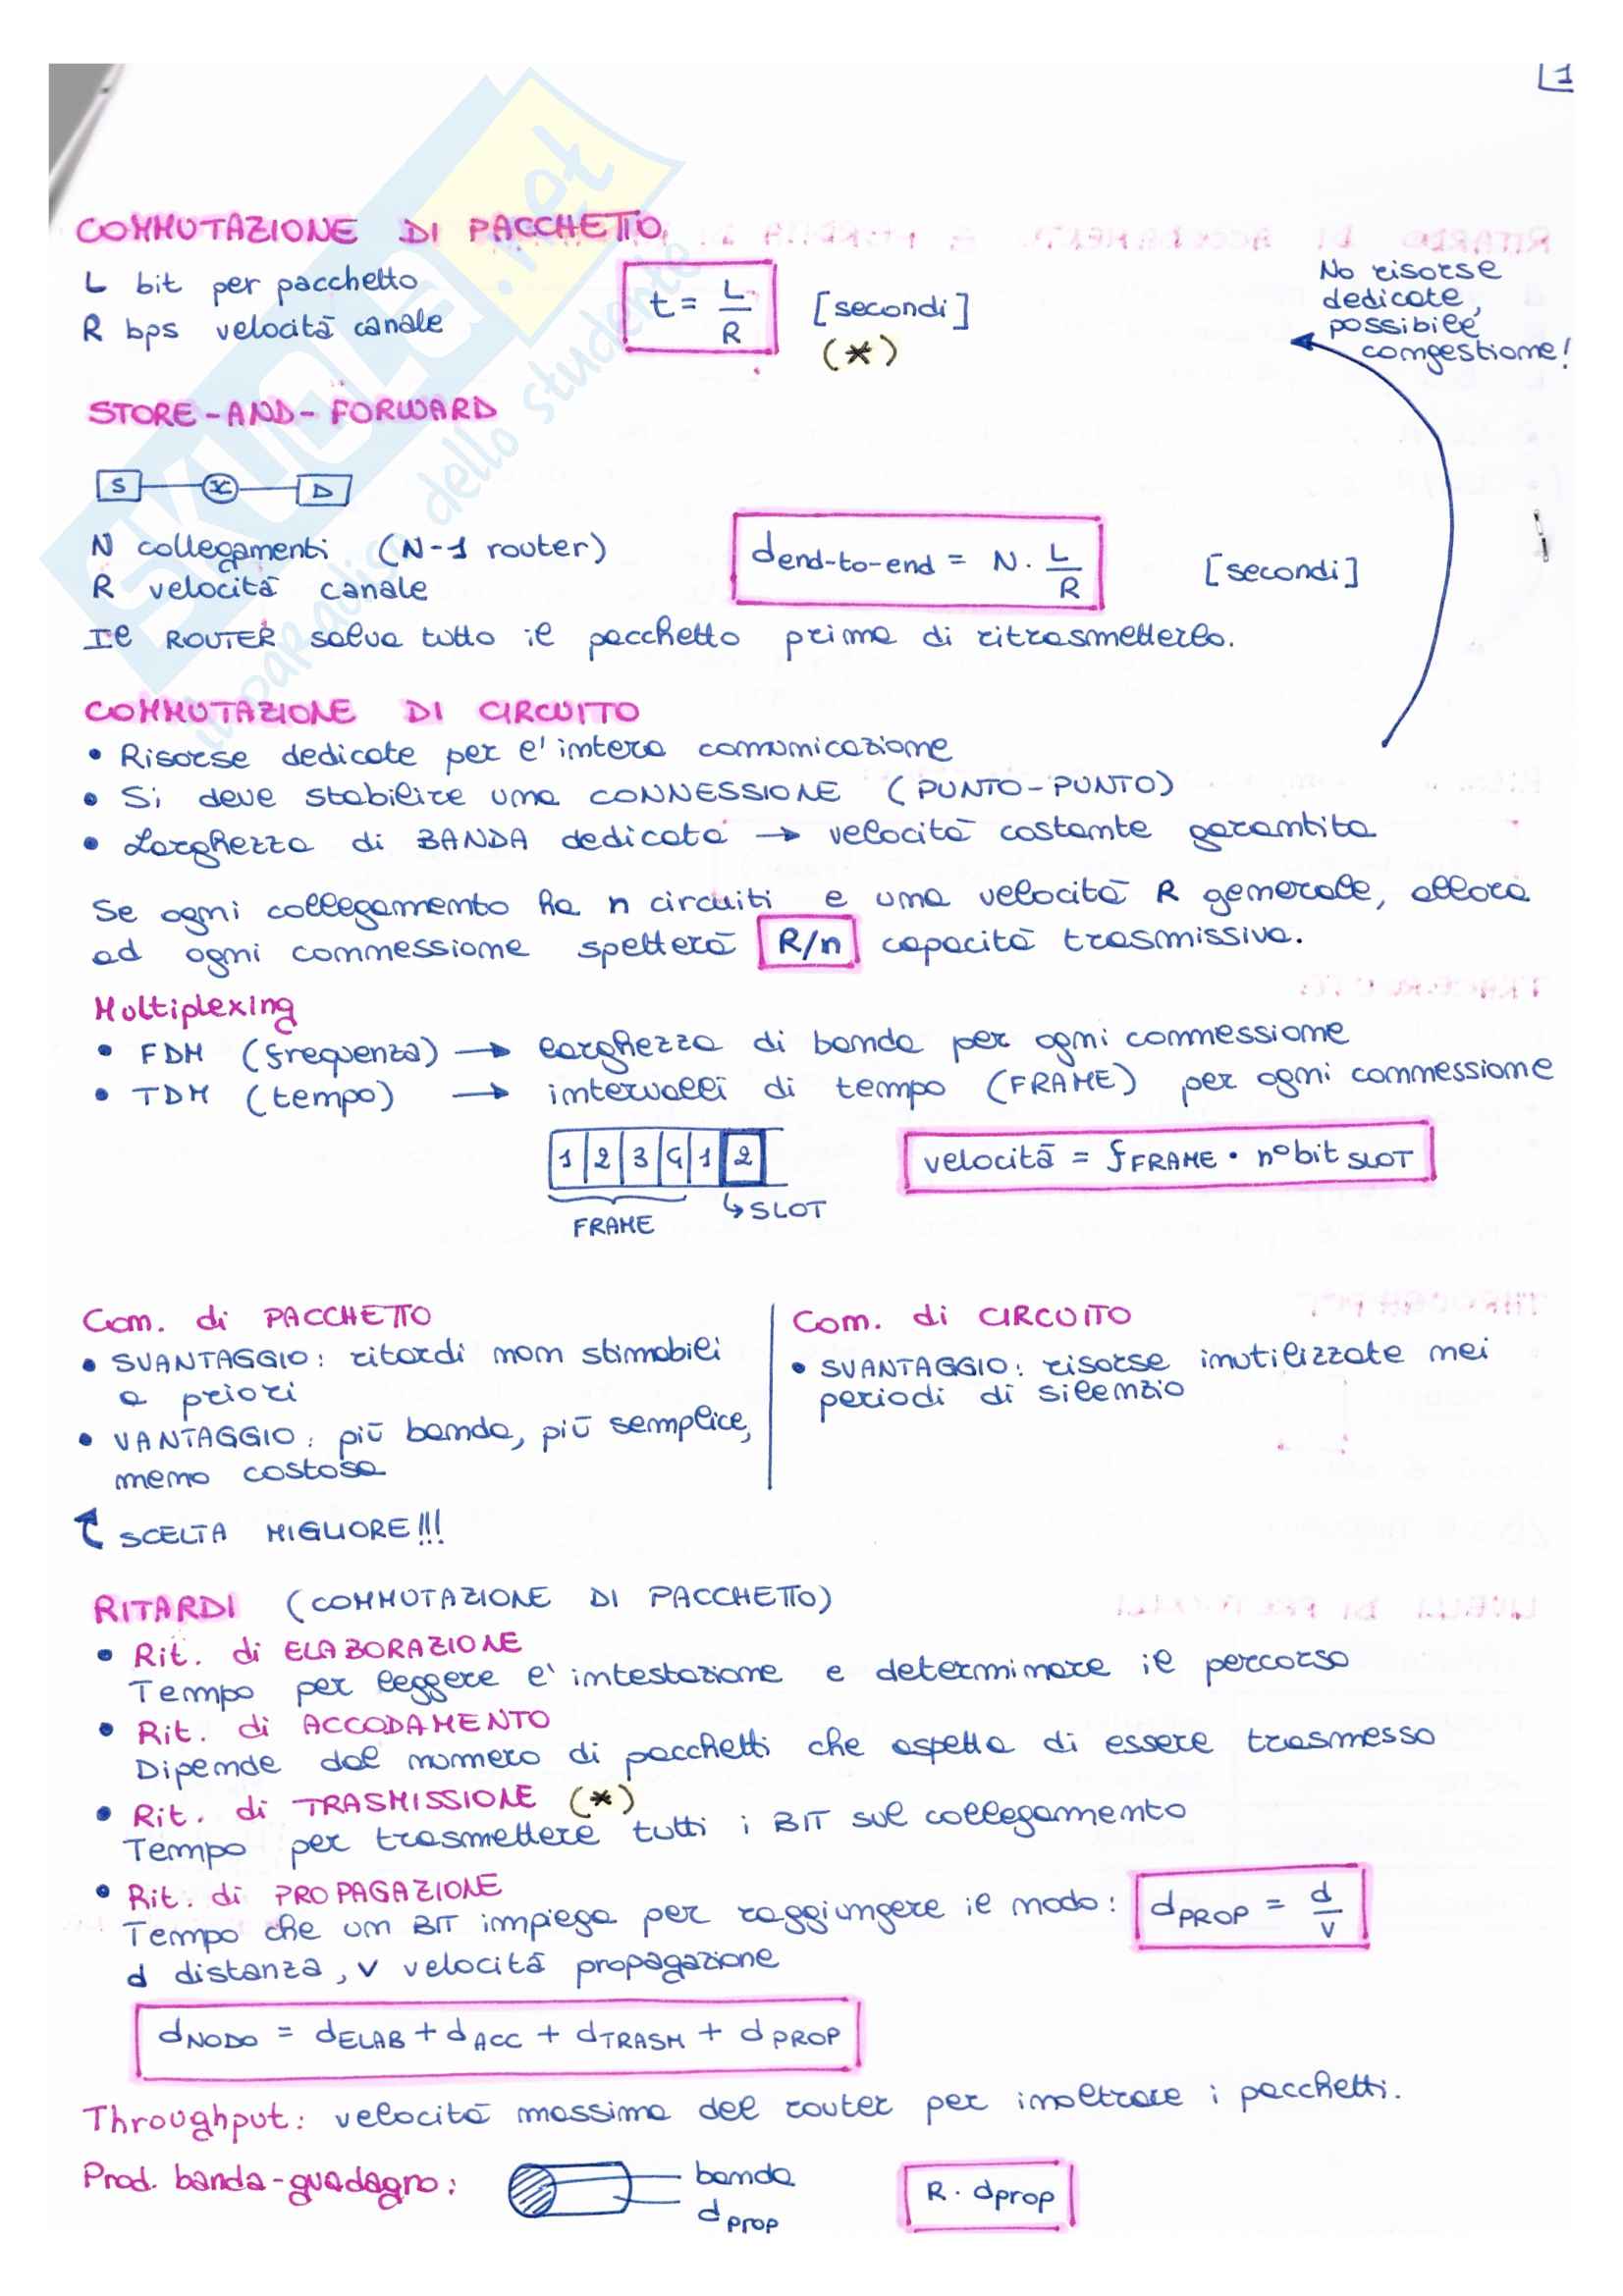 1
COMMUTAZIONE DI PACCHETTO
L bit per pacchetto
R bps velocità canale
t = L/R [secondi]
(*)
No risorse
dedicate,
possibile
congestione!
STORE-AND-FORWARD
S D
N collegamenti (N-1 router)
R velocità canale
dend-to-end = N · L/R [secondi]
Il ROUTER salva tutto il pacchetto prima di ritrasmetterlo.
COMMUTAZIONE DI CIRCUITO
• Risorse dedicate per l'intera comunicazione
• Si deve stabilire una CONNESSIONE (PUNTO-PUNTO)
• Larghezza di BANDA dedicata → velocità costante garantita
Se ogni collegamento ha n circuiti e una velocità R generale, allora
ad ogni connessione spetterà R/n capacità trasmissiva.
Multiplexing
• FDM (frequenza) → larghezza di banda per ogni connessione
• TDM (tempo) → intervalli di tempo (FRAME) per ogni connessione
1 2 3 4 1 2
FRAME
↳ SLOT
velocità = fFRAME · n° bit SLOT
Com. di PACCHETTO
• SVANTAGGIO: ritardi non stimabili
a priori
• VANTAGGIO: più banda, più semplice,
meno costosa
SCELTA MIGLIORE!!!
Com. di CIRCUITO
• SVANTAGGIO: risorse inutilizzate nei
periodi di silenzio
RITARDI (COMMUTAZIONE DI PACCHETTO)
• Rit. di ELABORAZIONE
Tempo per leggere l'intestazione e determinare il percorso
• Rit. di ACCODAMENTO
Dipende dal numero di pacchetti che aspetta di essere trasmesso
• Rit. di TRASMISSIONE (*)
Tempo per trasmettere tutti i BIT sul collegamento
• Rit. di PROPAGAZIONE
Tempo che un BIT impiega per raggiungere il nodo: dPROP = d/v
d distanza, v velocità propagazione
dNODO = dELAB + dACC + dTRASM + dPROP
Throughput: velocità massima del router per inoltrare i pacchetti.
Prod. banda-guadagno: banda
dprop
R · dprop
SKUOLA.net
il paradiso dello studente